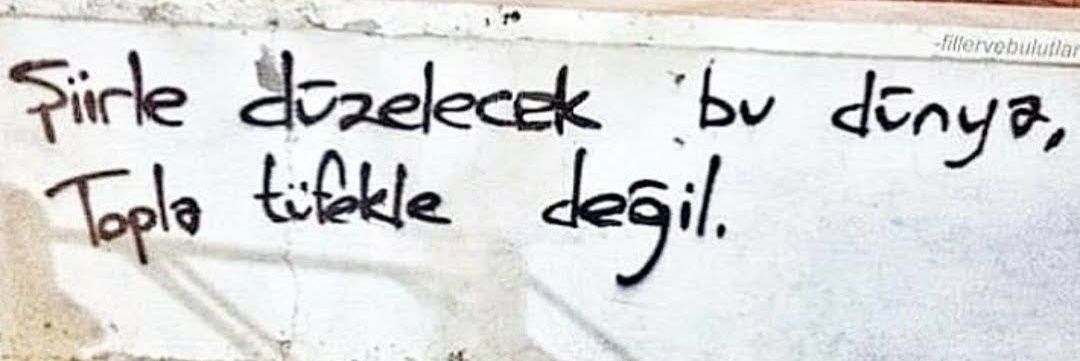 -fillervebulutlar
Şiirle düzelecek bu dünya,
Topla tüfekle değil.